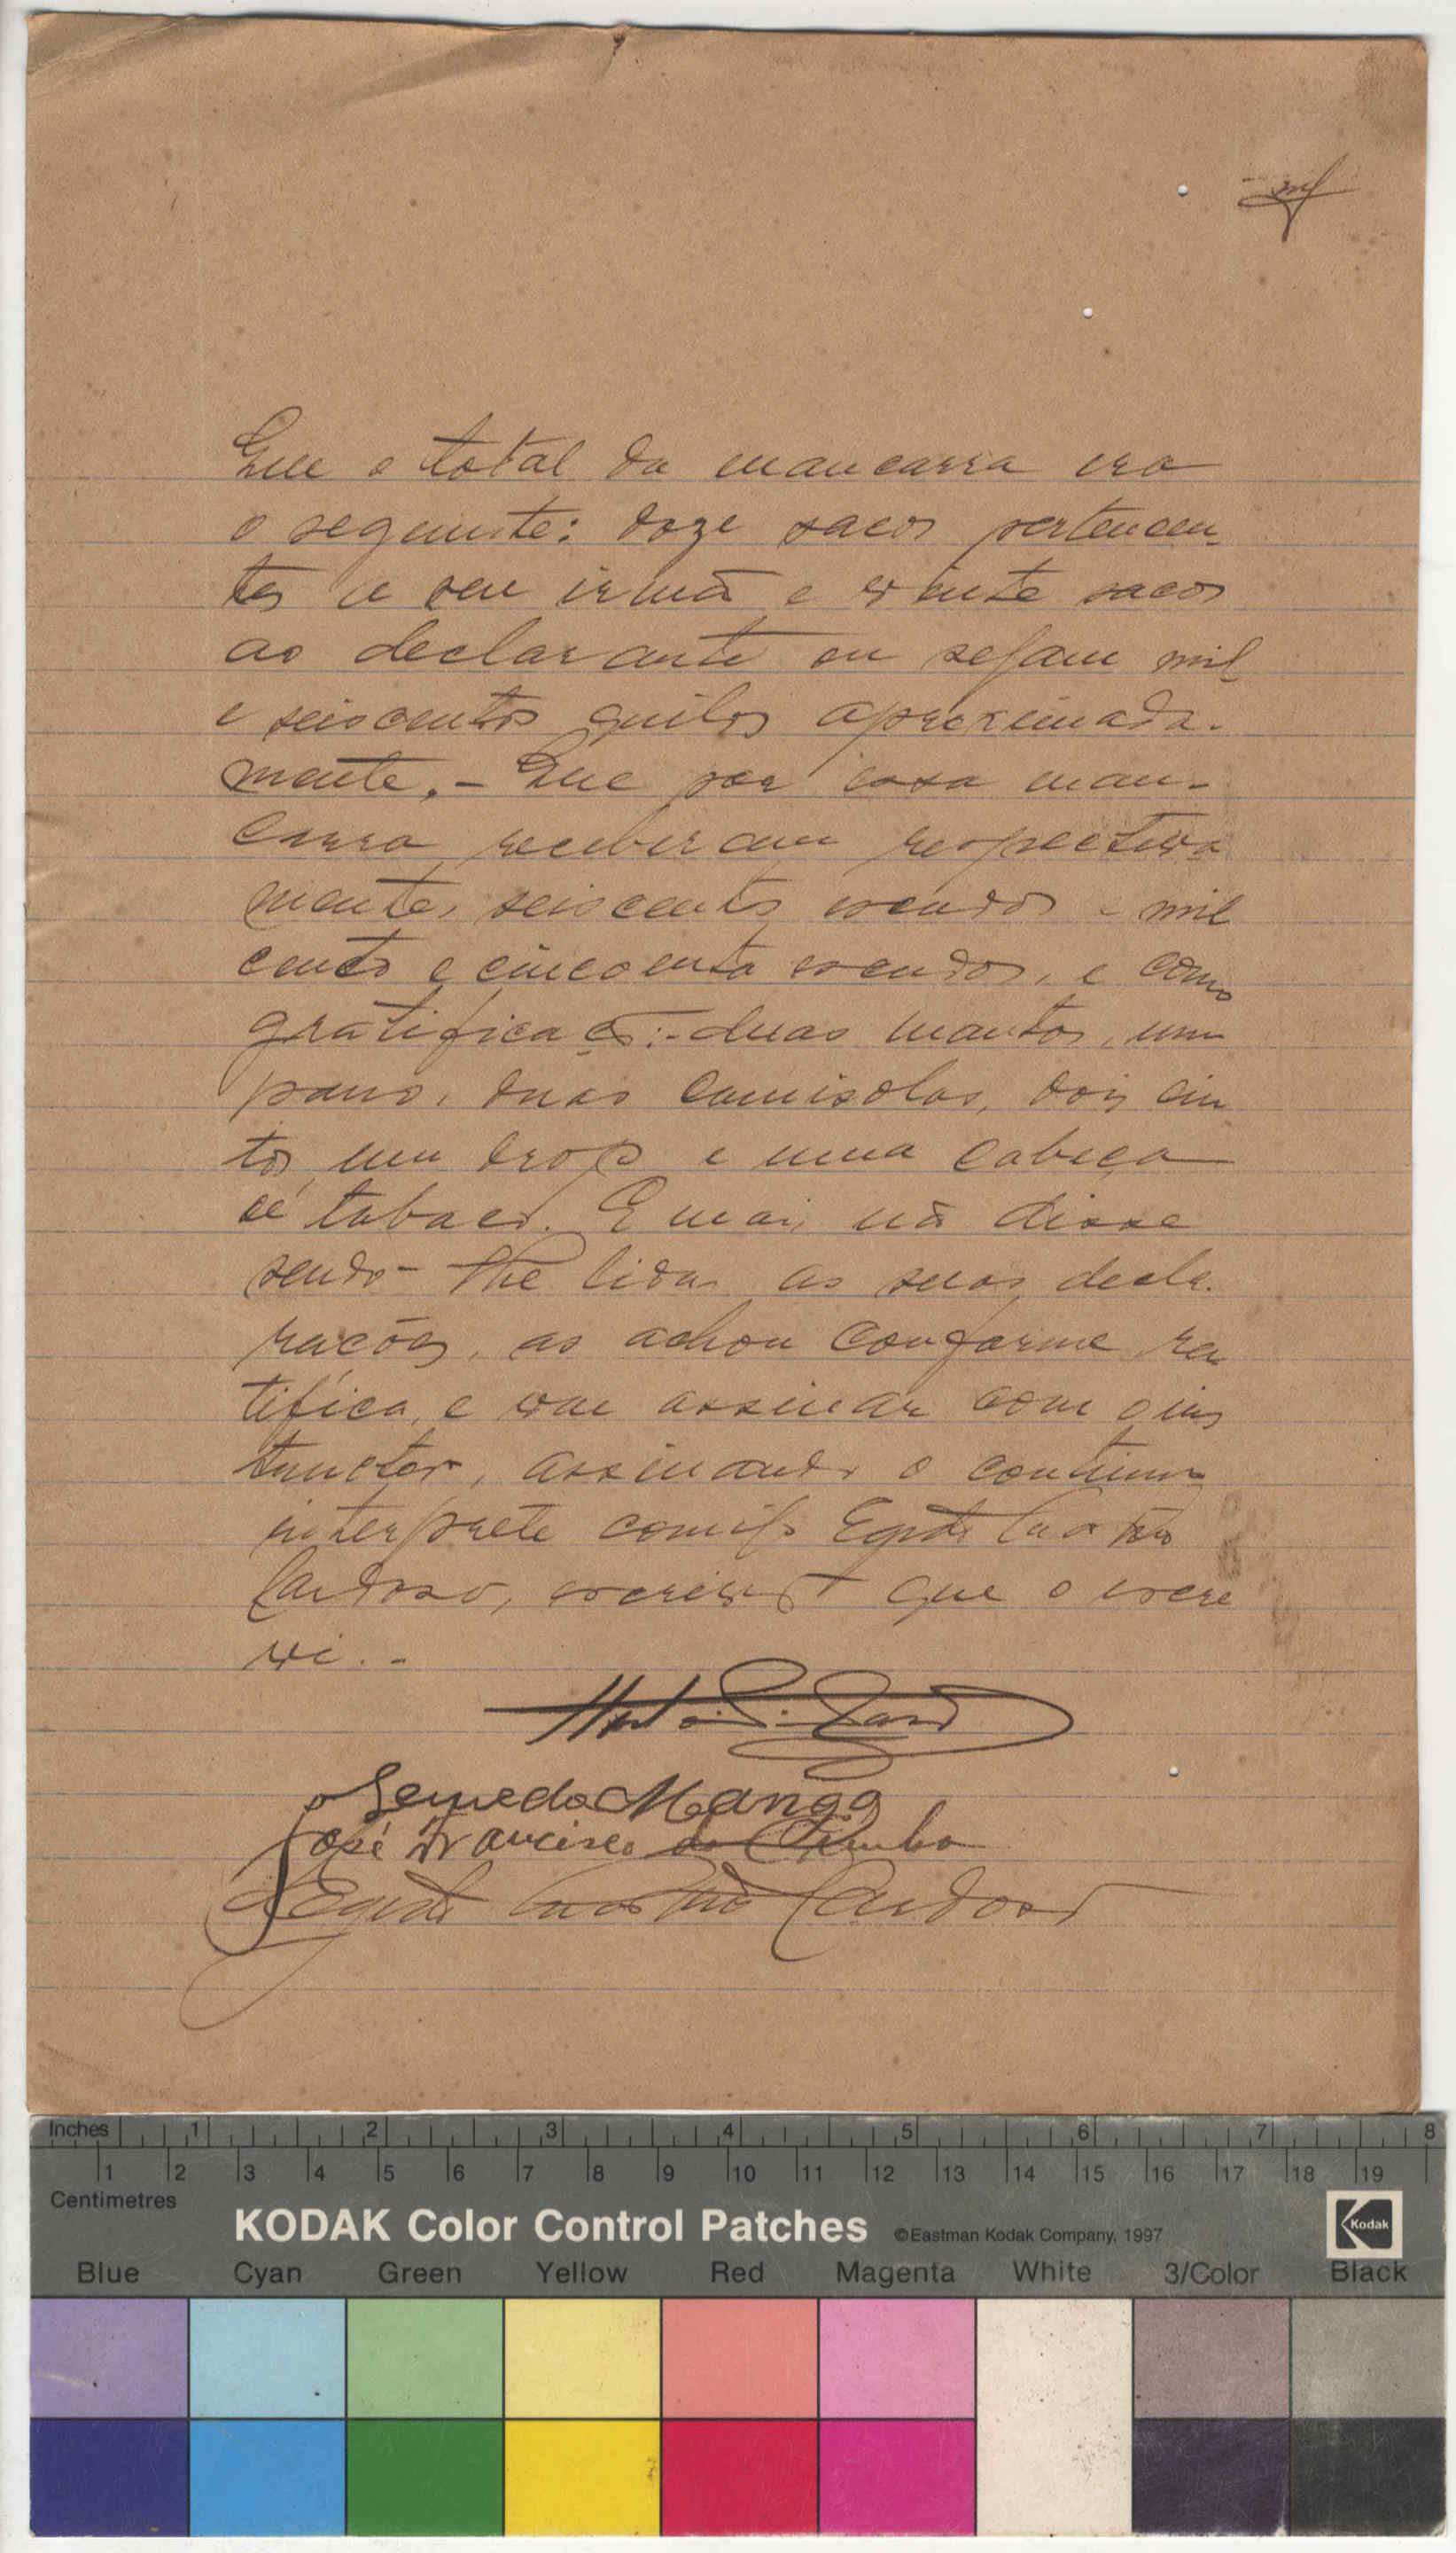 Que o total da mancarra era
o seguinte: doze sacos pertencen
tes a seu irmã e vinte sacos
ao declarante ou sejam mil
e seiscentos quilos aproximada-
mente. - Que por essa man-
carra receberam respectiva
mente, seiscentos escudos e mil
cento e cincoenta escudos, e como
gratificação:- duas mantas, um
pano, duas camisolas, dois cin
tos, um e uma cabeça
de tabaco. E mais não disse
sendo-lhe lidas as suas decla-
rações, as achou conforme ra
tifica, e vae assinar com o ins
tructor, assinando o
interprete comigo Egidio Castro
Cardoso, escrivão que o escre
vi. -
Semedo Mango
José Francisco da
Egidio Castro Cardoso
Inches 1 2 3 4 5 6 7 8
1 2 3 4 5 6 7 8 9 10 11 12 13 14 15 16 17 18 19
Centimetres
KODAK Color Control Patches ©Eastman Kodak Company, 1997 Kodak
Blue Cyan Green Yellow Red Magenta White 3/Color Black